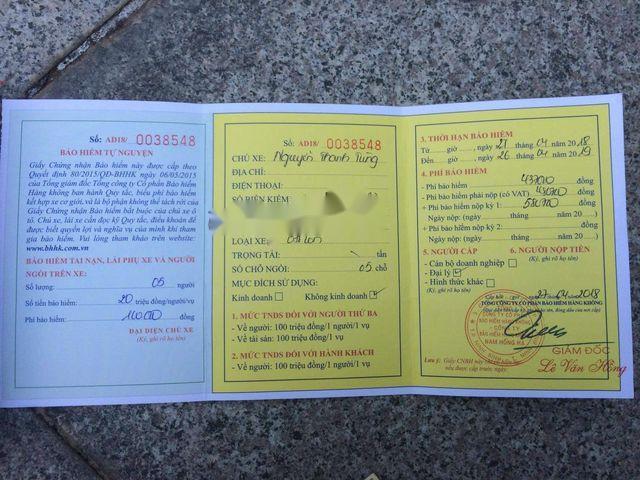 Số: AD18/ 0038548
BẢO HIỂM TỰ NGUYỆN
Giấy Chứng nhận Bảo hiểm này được cấp theo
Quyết định 80/2015/QĐ-BHHK ngày 06/05/2015
của Tổng giám đốc Tổng công ty Cổ phần Bảo hiểm
Hàng không ban hành Quy tắc, biểu phí bảo hiểm
kết hợp xe cơ giới, và là bộ phận không thể tách rời của
Giấy Chứng nhận Bảo hiểm bắt buộc của chủ xe ô
tô. Chủ xe, lái xe cần đọc kỹ Quy tắc, điều khoản để
được biết quyền lợi và nghĩa vụ của mình khi tham
gia bảo hiểm. Vui lòng tham khảo trên website:
www.bhhk.com.vn
BẢO HIỂM TAI NẠN, LÁI PHỤ XE VÀ NGƯỜI
NGỒI TRÊN XE:
Số lượng: 05 người
Số tiền bảo hiểm: 20 triệu đồng/người/vụ
Phí bảo hiểm: đồng
ĐẠI DIỆN CHỦ XE
(Ký, ghi rõ họ tên)
Số: AD18/ 0038548
CHỦ XE: Nguyễn Thanh Tùng
ĐỊA CHỈ:
ĐIỆN THOẠI
SỐ BIỂN KIỂM
LOẠI XE
TRỌNG TẢI: tấn
SỐ CHỖ NGỒI: 05 chỗ
MỤC ĐÍCH SỬ DỤNG:
Kinh doanh Không kinh doanh
1. MỨC TNDS ĐỐI VỚI NGƯỜI THỨ BA
- Về người: 100 triệu đồng/1 người/1 vụ
- Về tài sản: 100 triệu đồng/1 vụ
2. MỨC TNDS ĐỐI VỚI HÀNH KHÁCH
- Về người: 100 triệu đồng/1 người/1 vụ
3. THỜI HẠN BẢO HIỂM
Từ giờ, ngày 27 tháng 04 năm 2018
Đến giờ, ngày 26 tháng 04 năm 2019
4. PHÍ BẢO HIỂM
- Phí bảo hiểm: đồng
- Phí bảo hiểm phải nộp (có VAT) đồng
- Phí bảo hiểm nộp kỳ 1: đồng
Ngày nộp: (ngày tháng năm 20 )
- Phí bảo hiểm nộp kỳ 2: đồng
Ngày nộp: (ngày tháng năm 20 )
5. NGƯỜI CẤP 6. NGƯỜI NỘP TIỀN
- Cán bộ doanh nghiệp (Ký, ghi rõ họ tên)
- Đại lý
- Hình thức khác
(Ký, ghi rõ họ tên)
Cấp hồi giờ, ngày 27/04/2018
TỔNG CÔNG TY CỔ PHẦN BẢO HIỂM HÀNG KHÔNG
CÔNG TY
BẢO HIỂM HÀNG KHÔNG
NAM HỒNG HÀ
GIÁM ĐỐC
Lê Văn Hồng
Lưu ý: Giấy CNBH này
nếu được cấp trước ngày: